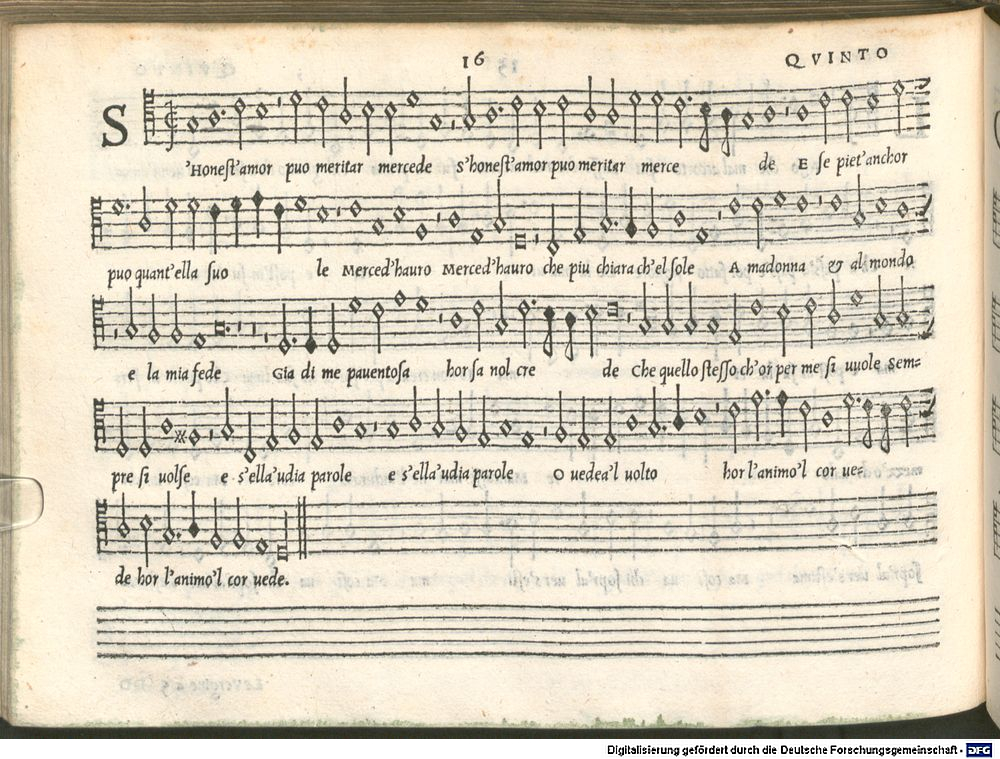 16
QVINTO
S'Honeſt'amor puo meritar mercede S'honeſt'amor puo meritar merce de E ſe piet'anchor
puo quant'ella ſuo le Merced'hauro Merced'hauro che piu chiara ch'el ſole A madonna & al mondo
e la mia fede Gia di me pauentoſa hor ſa nol cre de Che quello ſteſſo ch'or per me ſi vuole Sem=
pre ſi uolſe e s'ella'udia parole e s'ella'udia parole O uedea'l uolto hor l'animo'l cor ue=
de hor l'animo'l cor uede.
Digitalisierung gefördert durch die Deutsche Forschungsgemeinschaft - DFG